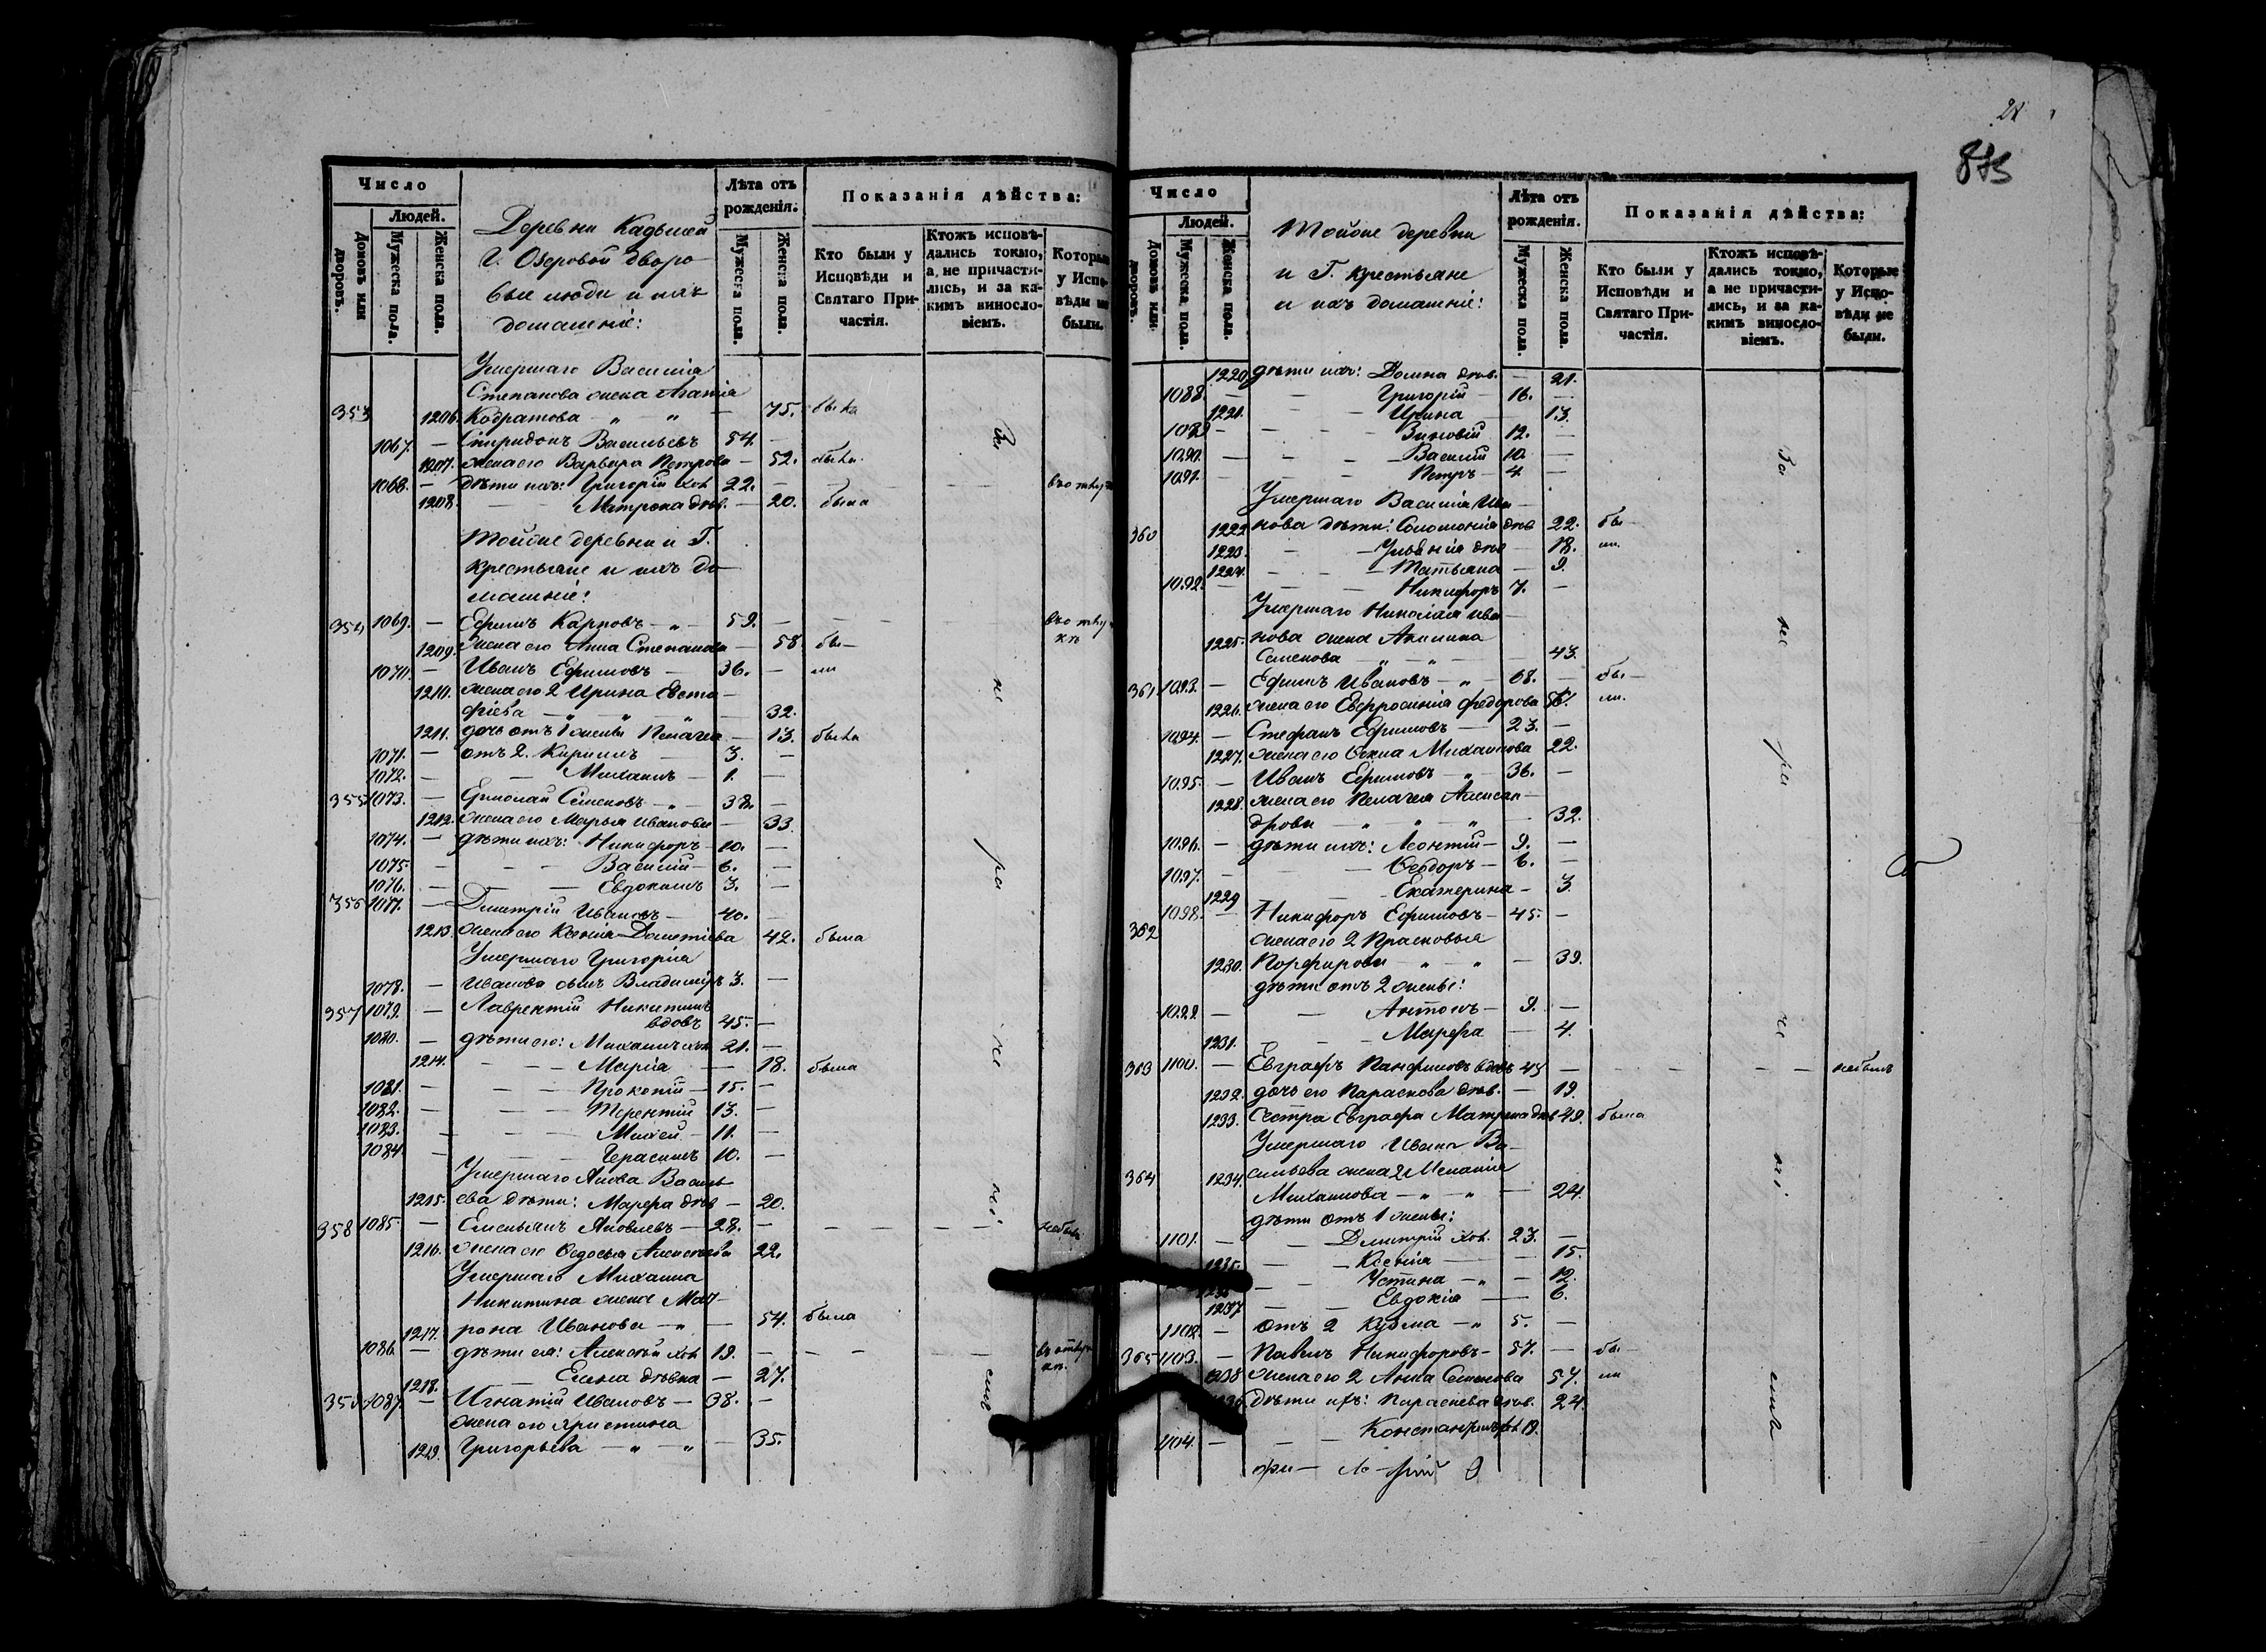 Число
Людей.
Домовъ или дворовъ.
Мужеска пола.
Женска пола.
Деревни Кадышей
Г. Озеровой дворо-
вые люди и ихъ
домашніе:
Лѣта отъ
рожденія.
Мужеска пола.
Женска пола.
Показанія дѣйства:
Кто были у
Исповѣди и
Святаго При-
частія.
Ктожъ исповѣ-
дались токмо,
а, не причасти-
лись, и за ка-
кимъ винносло-
віемъ.
Которые
у Испо-
вѣди не
были.
Умершаго Василія
Степанова жена Агафія
353 1206. Кодратова — „ „ — 75. была
1067. — Спиридонъ Васильевъ 54. —
1207. жена его Варвара Петрова — 52. была
1068. — дѣти ихъ: Григорій хол. 22. —
1208. — Матрона дѣв. — 20. была
Тойже деревни и Г.
крестьяне и ихъ до-
машніе:
354 1069. — Ефимъ Карповъ — „ — 59. — — —
1209. Жена его Анна Степанова — 58. бы —
1070. — Иванъ Ефимовъ — 36. — ли
1210. жена его 2 Ирина Евста-
фіева — „ „ „ — 32.
1211. дочь отъ 1 жены Пелагея — 13. была
1071. — отъ 2. Кирилъ — 3. —
1072. — — Михаилъ — 1. —
355 1073. — Ермолай Семеновъ — „ — 38. —
1212. жена его Марья Иванова — 33.
1074. — дѣти ихъ: Никифоръ — 10. —
1075. — — — Василій — 6. —
1076. — — — Евдокимъ 3. —
356 1077. — Дмитрій Ивановъ — 40. —
1213. жена его Ксенія Дометіева 42. была
Умершаго Григорія
1078. — Иванова сынъ Владиміръ 3. —
357 1079. — Лаврентій Никитинъ
вдовъ 45. —
1080. — дѣти его: Михаилъ хол. 21. —
1214. — — — Марія — 18. была
1081. — — — Прокопій — 15. —
1082. — — — Терентій 13. —
1083. — — — Михей — 11. —
1084. — — — Герасимъ 10. —
Умершаго Якова Василь-
1215. ева дѣти: Марфа дѣв. — 20.
358 1085. — Емельянъ Яковлевъ — 28. — — — — — небылъ
1216. жена его Ѳедосья Алексѣева 22.
Умершаго Михаила
Никитина жена Мат-
1217. рона Иванова — „ — 54. была
1086. — дѣти ея: Алексѣй хол. 19. — — — —
1218. — Елена дѣвка — 27.
359 1087. — Игнатій Ивановъ — 38. —
жена его Христина
1219. Григорьева — „ — „ — 35.
За
не
ра
че
ні
емъ
24
873
Число
Людей.
Домовъ или дворовъ.
Мужеска пола.
Женска пола.
Тойже деревни
и Г. крестьяне
и ихъ домашніе:
Лѣта отъ
рожденія.
Мужеска пола.
Женска пола.
Показанія дѣйства:
Кто были у
Исповѣди и
Святаго При-
частія.
Ктожъ исповѣ-
дались токмо,
а не причасти-
лись, и за ка-
кимъ винносло-
віемъ.
Которые
у Испо-
вѣди не
были.
1220 дѣти ихъ: Домна дѣв. — 21.
1088. — — Григорій — 16. —
1221. — — Ирина — 13.
1089 — — — Зиновій 12. —
1090. — — — Василій 10. —
1091. — — — Петръ — 4. —
Умершаго Василія Ива-
360 1222 нова дѣти: Соломонія дѣв. 22. бы —
1223. — — Ульянія дѣв. — 18. ли.
1224. — — — Татьяна — 9.
1092. — — — Никифоръ 7. —
Умершаго Николая Ива-
1225. нова жена Акилина
Семенова — „ — „ — 43.
361 1093. — Ефимъ Ивановъ — „ — 68. — бы —
1226. жена его Евфросинія Федорова 56. ли.
1094. — Стефанъ Ефимовъ — 23. —
1227. жена его Ѳекла Михайлова 22.
1095. — Иванъ Ефимовъ — „ — 36. —
1228. жена его Пелагея Алексан-
дрова — „ „ — „ — 32.
1096. — дѣти ихъ: Леонтій — 9. —
1097. — — — Ѳеодоръ — 6. —
1229 — — Екатерина — 3.
362 1098. — Никифоръ Ефимовъ — 45. —
жена его 2 Прасковья
1230. Порфирова — „ — „ — 39.
дѣти отъ 2 жены:
1099. — — Антонъ — 9. —
1231. — — Марфа — 4.
363 1100. — Евграфъ Панфиловъ вдовъ 45 — — — — — небылъ
1232. дочь его Параскева дѣв. — 19.
1233. Сестра Евграфа Матрона дѣв. 49. была
Умершаго Ивана Ва-
364 1234. сильева жена 2 Меланія
Михайлова — „ — „ — 24.
дѣти отъ 1 жены:
1101. — — Дмитрій хол. 23. —
1235. — — Ксенія — — 15.
1236 — — Устина — „ — 12.
1237 — — Евдокія — — 6.
1102. — отъ 2 Кузма — „ 5. —
365 1103. — Павелъ Никифоровъ — 57. — бы —
1238 жена его 2 Анна Семенова 57. ли
дѣти ихъ: Параскева дѣв. 24.
1104. — — — Константинъ хол. 19.
За
не
ра
че
ні
емъ